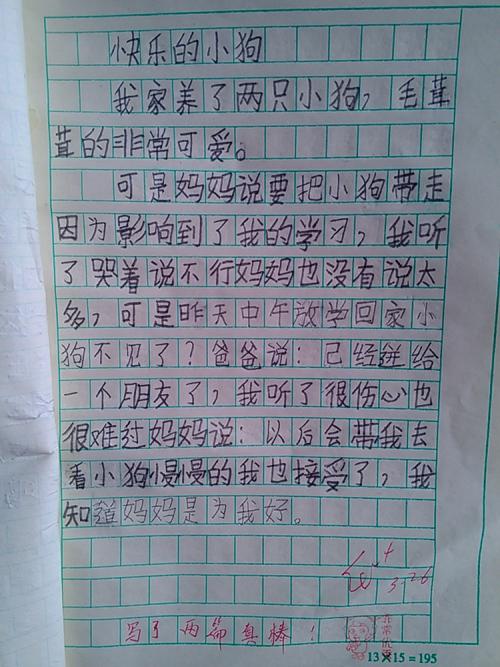 快乐的小狗
我家养了两只小狗，毛茸
茸的非常可爱。
可是妈妈说要把小狗带走
因为影响到了我的学习，我听
了哭着说不行妈妈也没有说太
多，可是昨天中午放学回家小
狗不见了？爸爸说：已经送给
一个朋友了，我听了很伤心也
很难过妈妈说：以后会带我去
看小狗慢慢的我也接受了，我
知道妈妈是为我好。
3.26
写了两篇真棒！
13×15=195